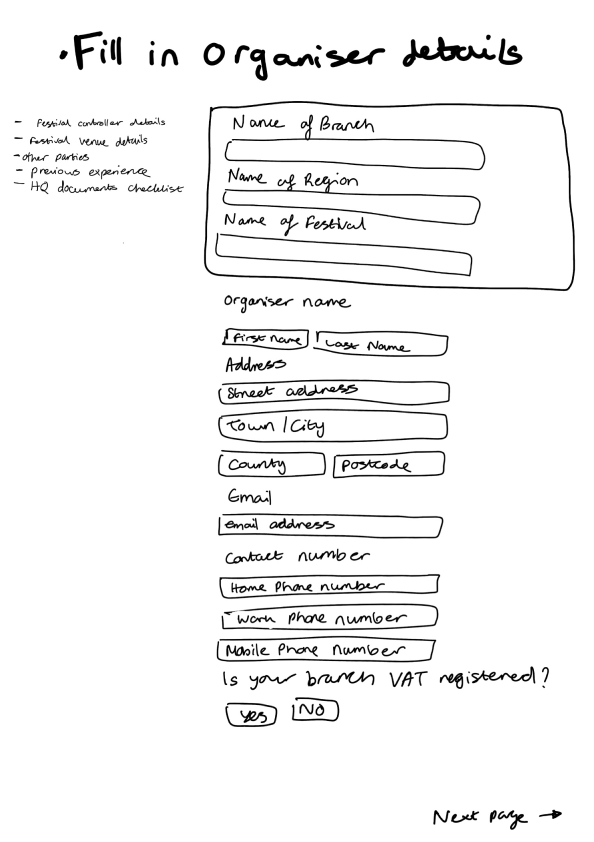 • Fill in organiser details
- Festival controller details
- Festival venue details
- other parties
- previous experience
- HQ documents checklist
Name of Branch
Name of Region
Name of Festival
organiser name
First name Last Name
Address
Street address
Town / City
County Postcode
Email
email address
Contact number
Home Phone number
Work phone number
Mobile Phone number
Is your branch VAT registered?
yes No
Next page →